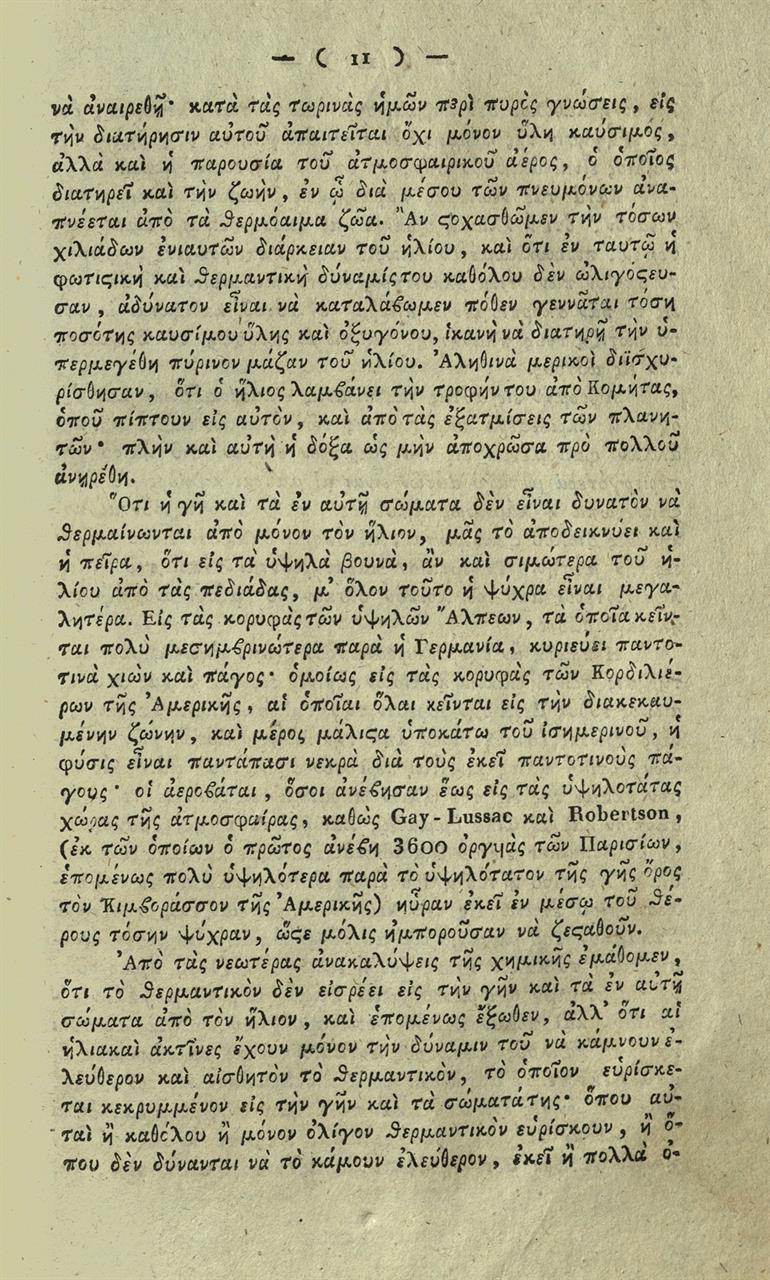 — ( 11 ) —
νὰ ἀναιρεθῇ· κατὰ τὰς τωρινὰς ἡμῶν περὶ πυρὸς γνώσεις, εἰς
τὴν διατήρησιν αὐτοῦ ἀπαιτεῖται ὄχι μόνον ὕλη καύσιμος,
ἀλλὰ καὶ ἡ παρουσία τοῦ ἀτμοσφαιρικοῦ ἀέρος, ὁ ὁποῖος
διατηρεῖ καὶ τὴν ζωὴν, ἐν ᾧ διὰ μέσου τῶν πνευμόνων ἀνα-
πνέεται ἀπὸ τὰ θερμόαιμα ζῶα. Ἂν ϛοχασθῶμεν τὴν τόσων
χιλιάδων ἐνιαυτῶν διάρκειαν τοῦ ἡλίου, καὶ ὅτι ἐν ταυτῷ ἡ
φωτιϛικὴ καὶ θερμαντικὴ δύναμίς του καθόλου δὲν ὠλιγόϛευ-
σαν, ἀδύνατον εἶναι νὰ καταλάβωμεν πόθεν γεννᾶται τόση
ποσότης καυσίμου ὕλης καὶ ὀξυγόνου, ἱκανὴ νὰ διατηρῇ τὴν ὑ-
περμεγέθη πύρινον μάζαν τοῦ ἡλίου. Ἀληθινὰ μερικοὶ διϊσχυ-
ρίσθησαν, ὅτι ὁ ἥλιος λαμβάνει τὴν τροφήν του ἀπὸ Κομήτας,
ὁποῦ πίπτουν εἰς αὐτὸν, καὶ ἀπὸ τὰς ἐξατμίσεις τῶν πλανη-
τῶν· πλὴν καὶ αὐτὴ ἡ δόξα ὡς μὴν ἀποχρῶσα πρὸ πολλοῦ
ἀνῃρέθη.
Ὅτι ἡ γῆ καὶ τὰ ἐν αὐτῇ σώματα δὲν εἶναι δυνατὸν νὰ
θερμαίνωνται ἀπὸ μόνον τὸν ἥλιον, μᾶς τὸ ἀποδεικνύει καὶ
ἡ πεῖρα, ὅτι εἰς τὰ ὑψηλὰ βουνὰ, ἂν καὶ σιμώτερα τοῦ ἡ-
λίου ἀπὸ τὰς πεδιάδας, μ' ὅλον τοῦτο ἡ ψύχρα εἶναι μεγα-
λητέρα. Εἰς τὰς κορυφὰς τῶν ὑψηλῶν Ἄλπεων, τὰ ὁποῖα κεῖν-
ται πολὺ μεσημβρινώτερα παρὰ ἡ Γερμανία, κυριεύει παντο-
τινὰ χιὼν καὶ πάγος· ὁμοίως εἰς τὰς κορυφὰς τῶν Κορδιλιέ-
ρων τῆς Ἀμερικῆς, αἱ ὁποῖαι ὅλαι κεῖνται εἰς τὴν διακεκαυ-
μένην ζώνην, καὶ μέρος μάλιϛα ὑποκάτω τοῦ ἰσημερινοῦ, ἡ
φύσις εἶναι παντάπασι νεκρὰ διὰ τοὺς ἐκεῖ παντοτινοὺς πά-
γους· οἱ ἀεροβάται, ὅσοι ἀνέβησαν ἕως εἰς τὰς ὑψηλοτάτας
χώρας τῆς ἀτμοσφαίρας, καθὼς Gay-Lussac καὶ Robertson,
(ἐκ τῶν ὁποίων ὁ πρῶτος ἀνέβη 3600 ὀργυιὰς τῶν Παρισίων,
ἑπομένως πολὺ ὑψηλότερα παρὰ τὸ ὑψηλότατον τῆς γῆς ὄρος
τὸν Κιμβοράσσον τῆς Ἀμερικῆς) ηὗραν ἐκεῖ ἐν μέσῳ τοῦ θέ-
ρους τόσην ψύχραν, ὥϛε μόλις ἠμποροῦσαν νὰ ζεϛαθοῦν.
Ἀπὸ τὰς νεωτέρας ἀνακαλύψεις τῆς χημικῆς ἐμάθομεν,
ὅτι τὸ θερμαντικὸν δὲν εἰσρέει εἰς τὴν γῆν καὶ τὰ ἐν αὐτῇ
σώματα ἀπὸ τὸν ἥλιον, καὶ ἑπομένως ἔξωθεν, ἀλλ' ὅτι αἱ
ἡλιακαὶ ἀκτῖνες ἔχουν μόνον τὴν δύναμιν τοῦ νὰ κάμνουν ἐ-
λεύθερον καὶ αἰσθητὸν τὸ θερμαντικὸν, τὸ ὁποῖον εὑρίσκε-
ται κεκρυμμένον εἰς τὴν γῆν καὶ τὰ σώματάτης· ὅπου αὐ-
ταὶ ἢ καθόλου ἢ μόνον ὀλίγον θερμαντικὸν εὑρίσκουν, ἢ ὅ-
που δὲν δύνανται νὰ τὸ κάμουν ἐλεύθερον, ἐκεῖ ἢ πολλὰ ὀ-